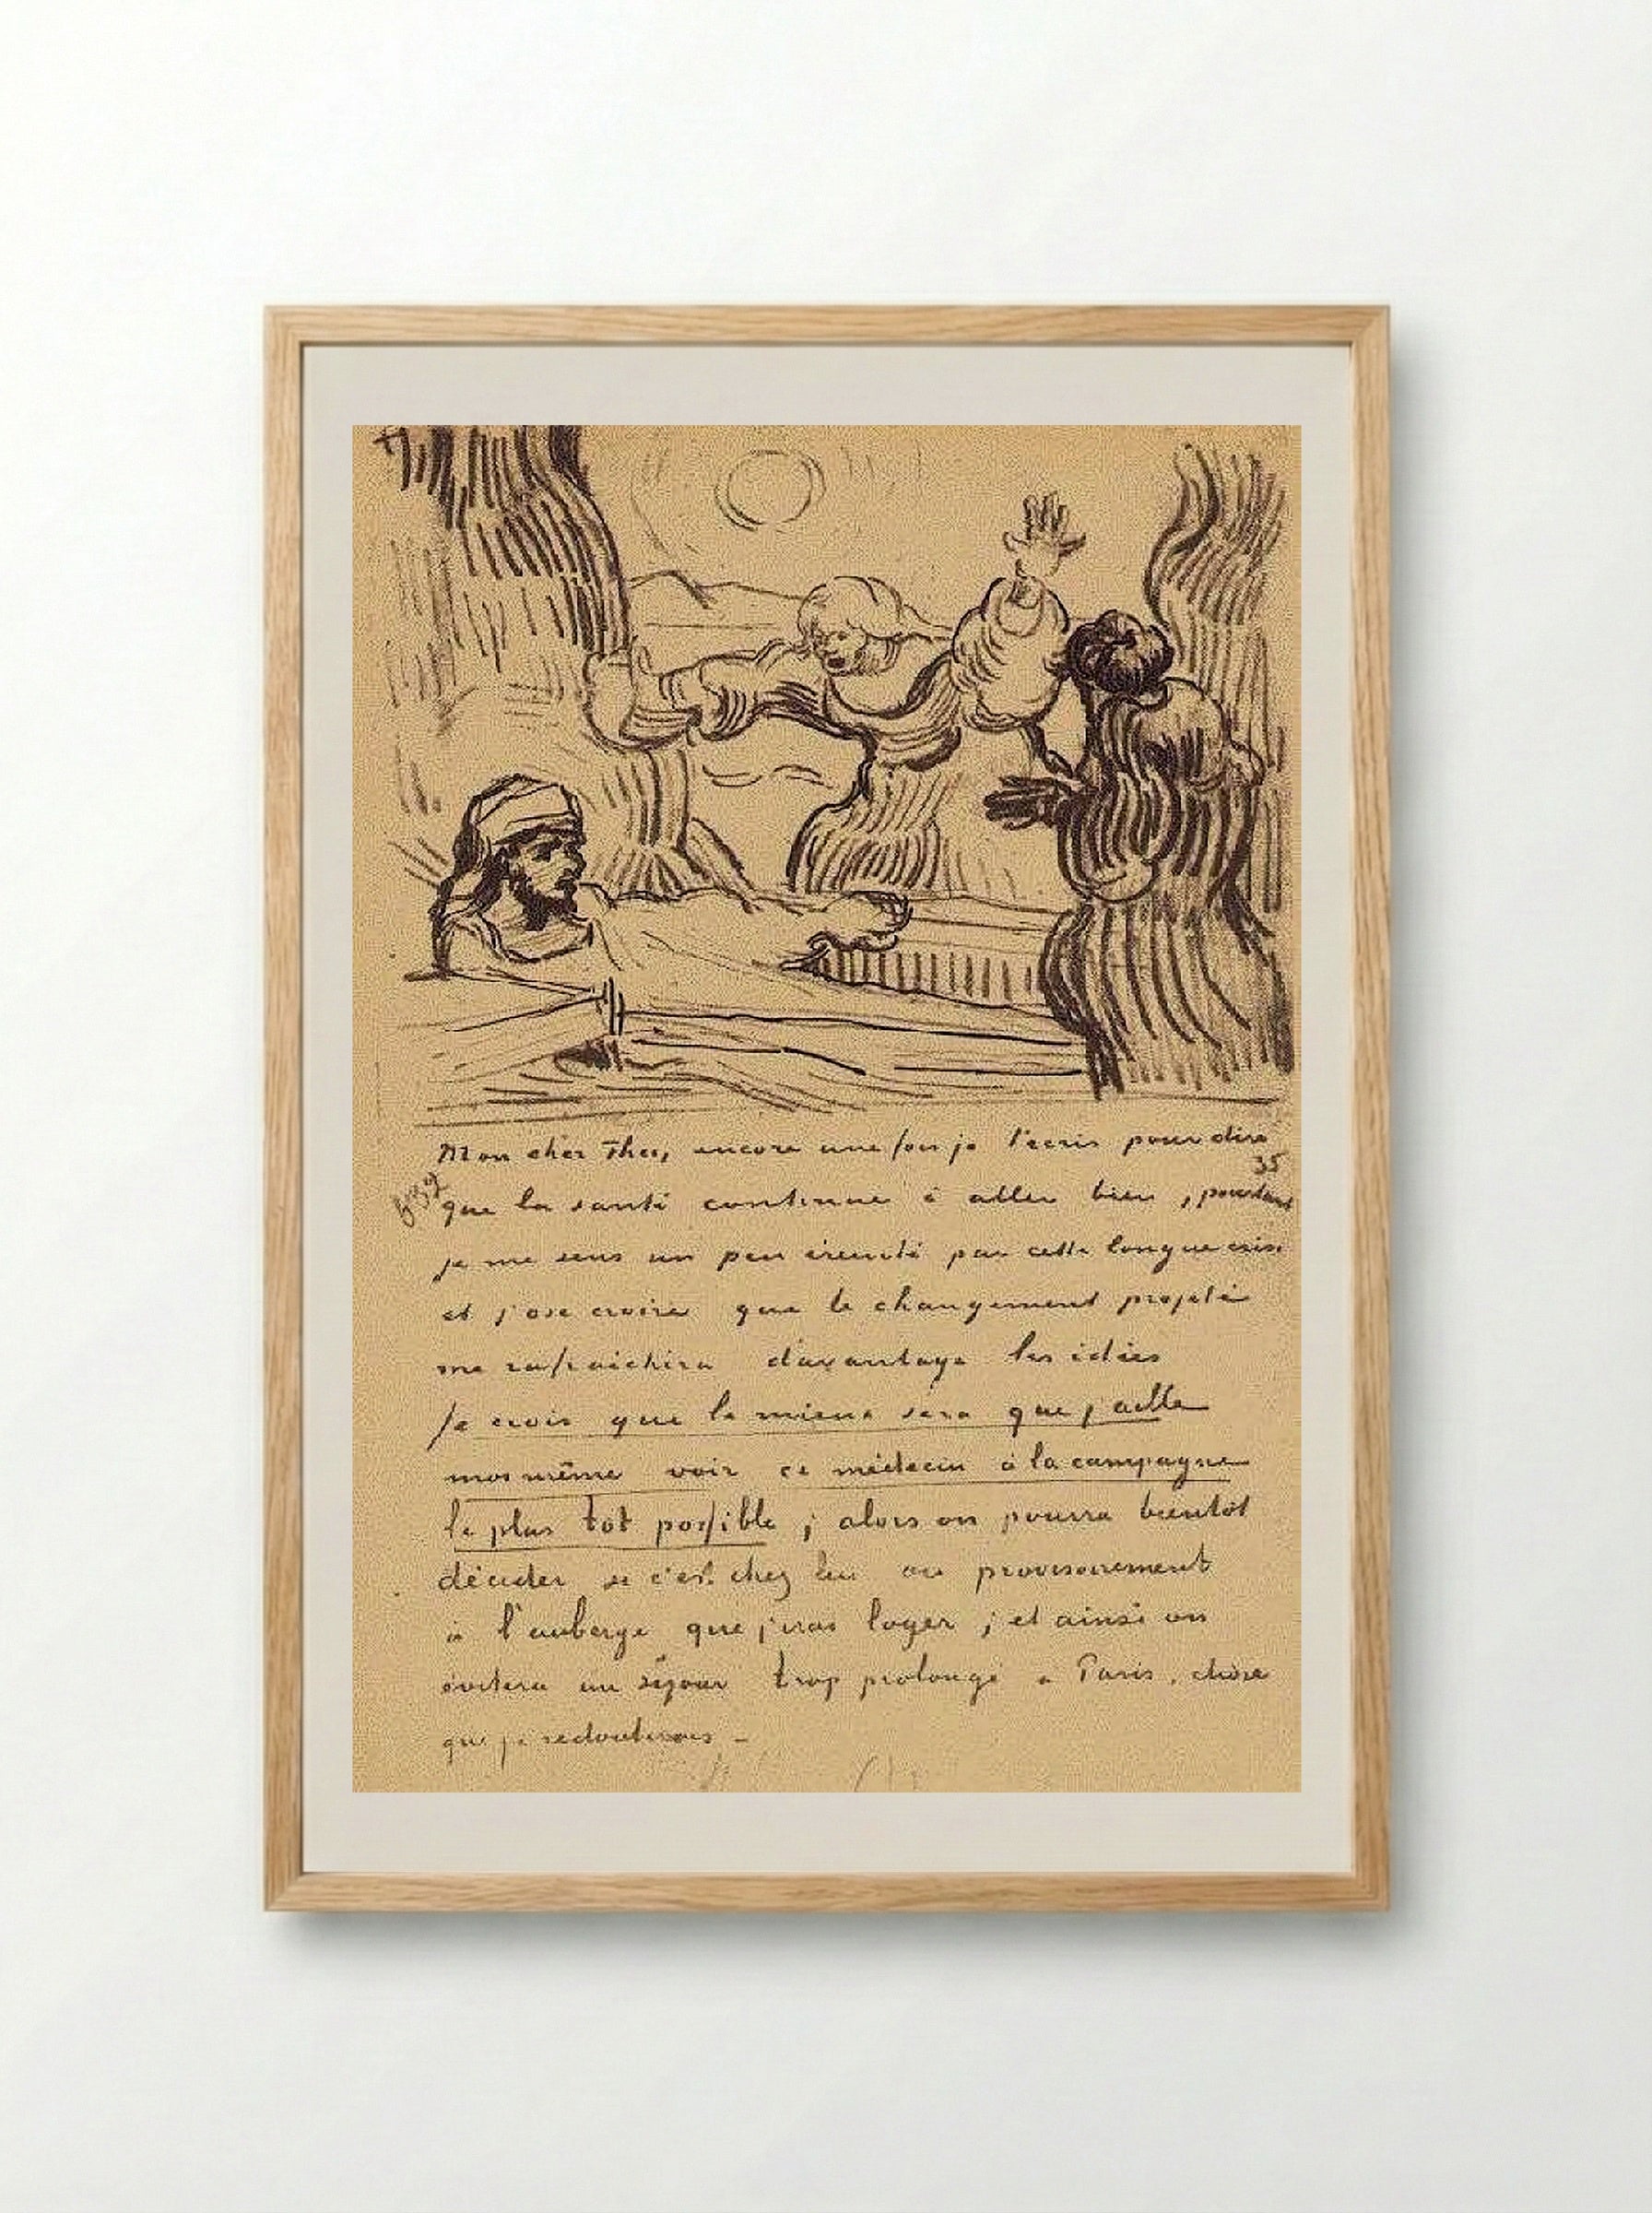 Mon cher Theo, encore une fois je t'écris pour dire
35
que la santé continue à aller bien, pourtant
je me sens un peu éreinté par cette longue crise
et j'ose croire que le changement projeté
me rafraichira davantage les idées
Je crois que le mieux sera que j'aille
moi même voir ce médecin à la campagne
le plus tot possible ; alors on pourra bientôt
décider si c'est chez lui ou provisoirement
à l'auberge que j'irai loger ; et ainsi on
évitera un séjour trop prolongé à Paris, chose
que je redouterais -